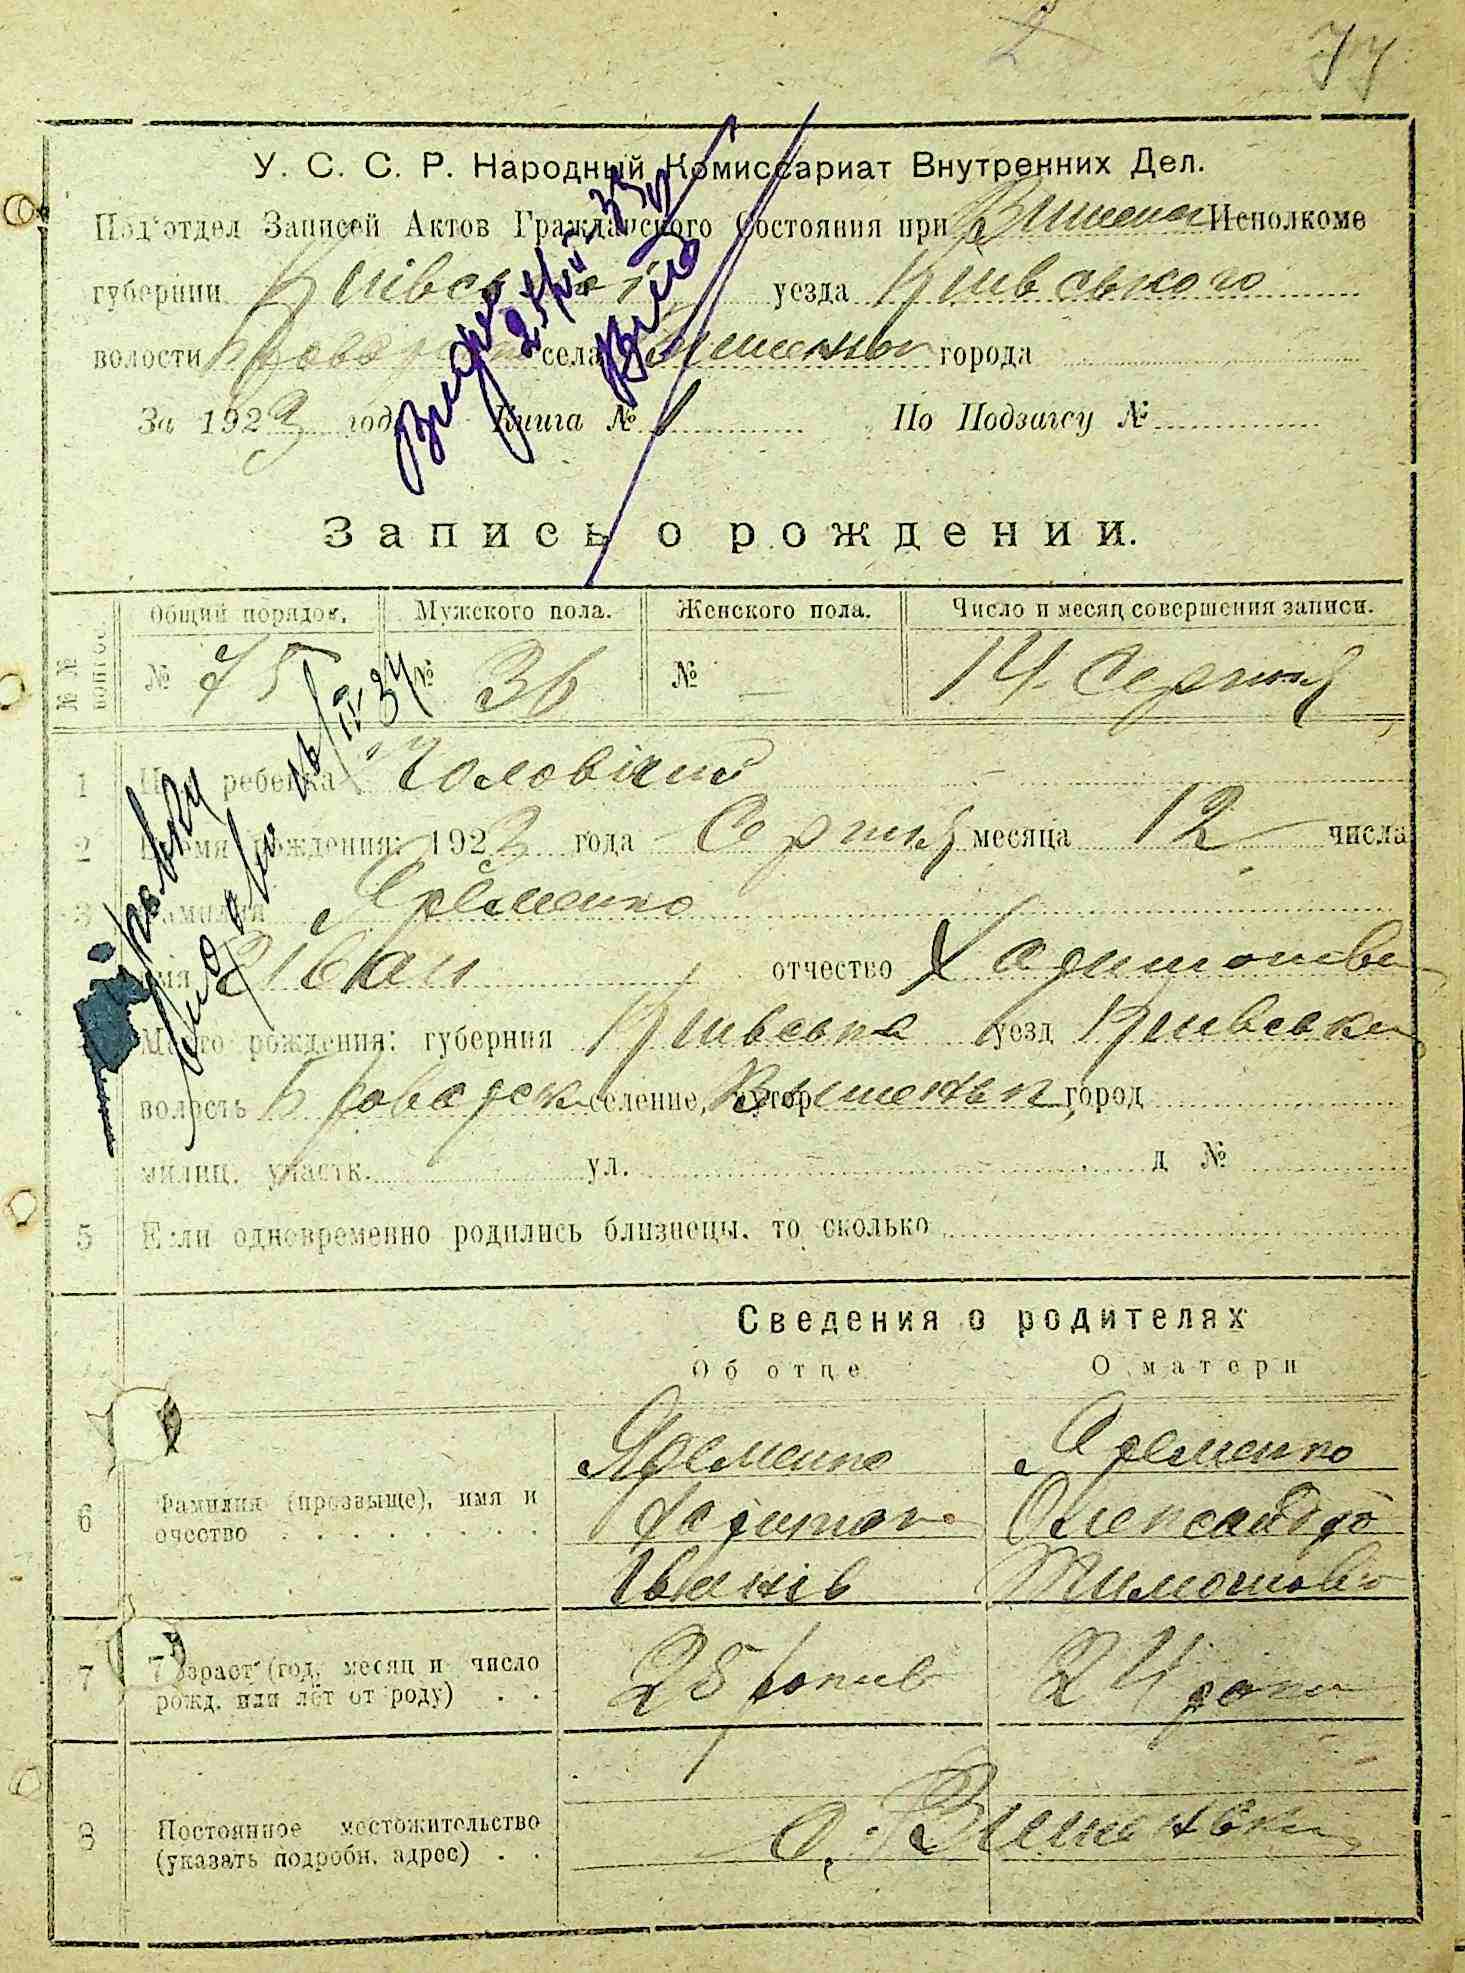 77
У. С. С. Р. Народный Комиссариат Внутренних Дел.
Под'отдел Записей Актов Гражданского Состояния при Исполкоме
губернии Київської уезда Київського
волости села города
За 1923 год Книга № 1 По Подзагсу №
Видано
Запись о рождении.
№№ Общий порядок. Мужского пола. Женского пола. Число и месяц совершения записи.
№ 75 № 36 № — 14 Серпня
16/IV-34
1 Пол ребенка Чоловічий
2 Время рождения: 1923 года Серпня месяца 12 числа
3 Фамилия Яременко
имя Іван отчество Харитонов
Место рождения: губерния Київська уезд Київський
волость Броварск селение, хутор город
милиц. участк. ул. д №
5 Если одновременно родились близнецы, то сколько
Сведения о родителях
Об отце О матери
6 Фамилия (прозвище), имя и очество
Яременко Яременко
Харитон Олександра
Іванів Тимошова
7 Возраст (год, месяц и число рожд. или лет от роду) . .
25 років 24 роки
8 Постоянное местожительство (указать подробн. адрес) . .
с. Вишеньки